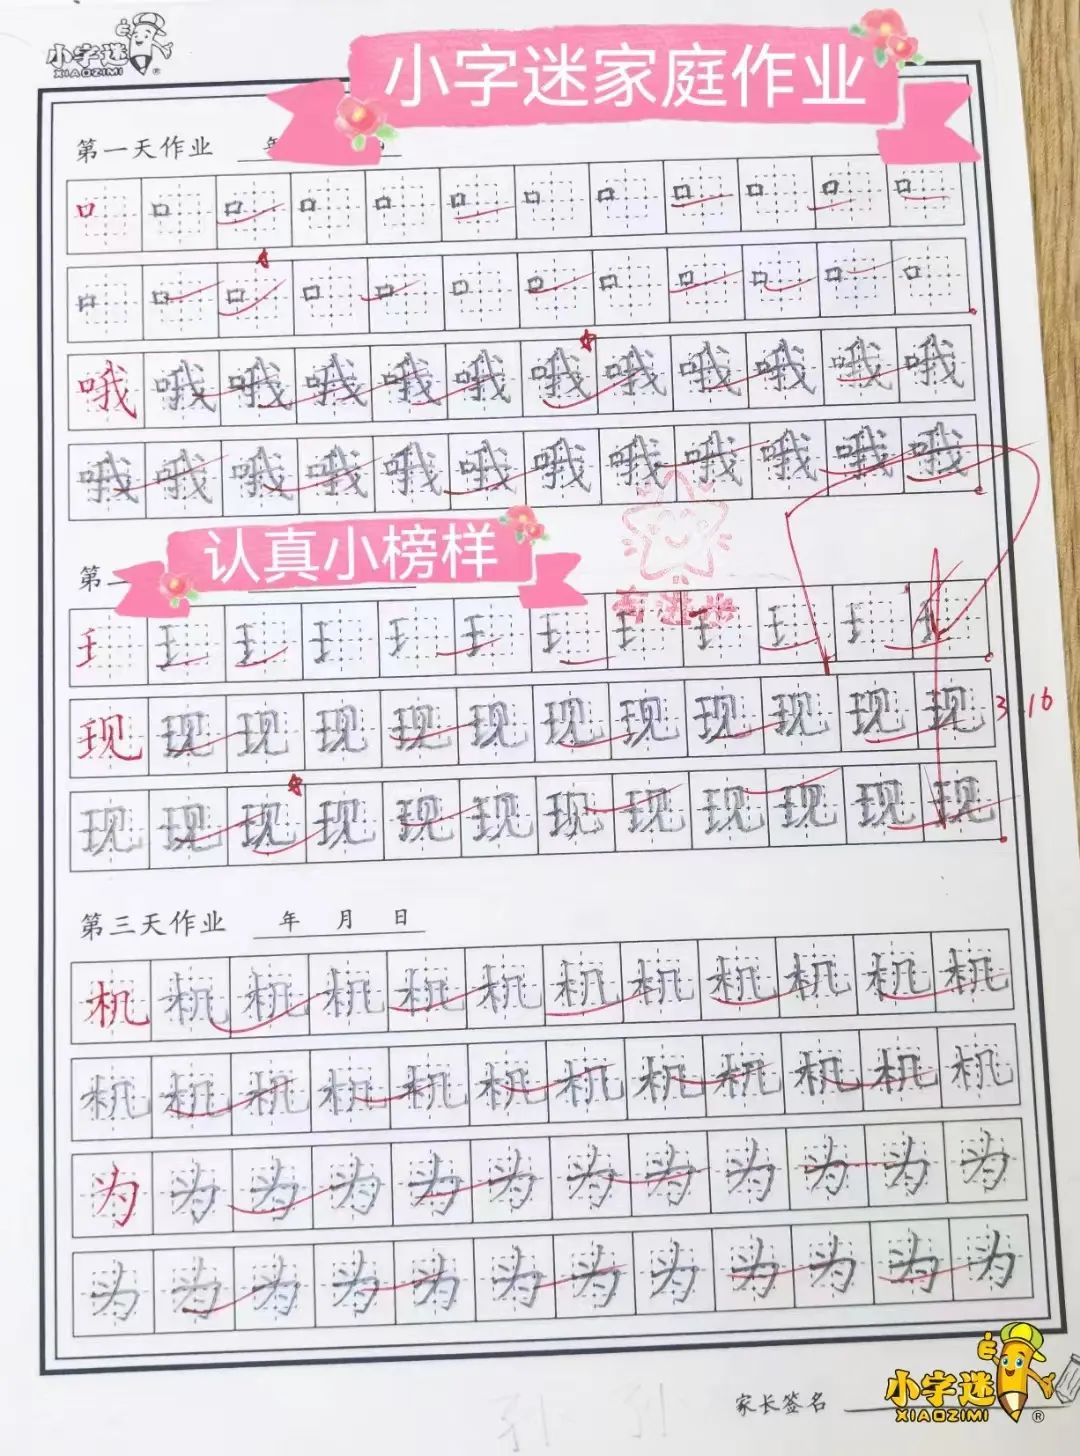 小字迷
XIAOZIMI®
小字迷家庭作业
第一天作业 年
口 口 口 口 口 口 口 口 口 口 口 口
口 口 口 口 口 口 口 口 口 口 口 口
哦 哦 哦 哦 哦 哦 哦 哦 哦 哦 哦 哦
哦 哦 哦 哦 哦 哦 哦 哦 哦 哦 哦 哦
认真小榜样
第二
有进步
王 王 王 王 王 王 王 王 王 王 王 王
现 现 现 现 现 现 现 现 现 现 现 现
3.16
现 现 现 现 现 现 现 现 现 现 现 现
第三天作业 年 月 日
机 机 机 机 机 机 机 机 机 机 机 机
机 机 机 机 机 机 机 机 机 机 机 机
为 为 为 为 为 为 为 为 为 为 为 为
为 为 为 为 为 为 为 为 为 为 为 为
家长签名
小字迷
XIAOZIMI®